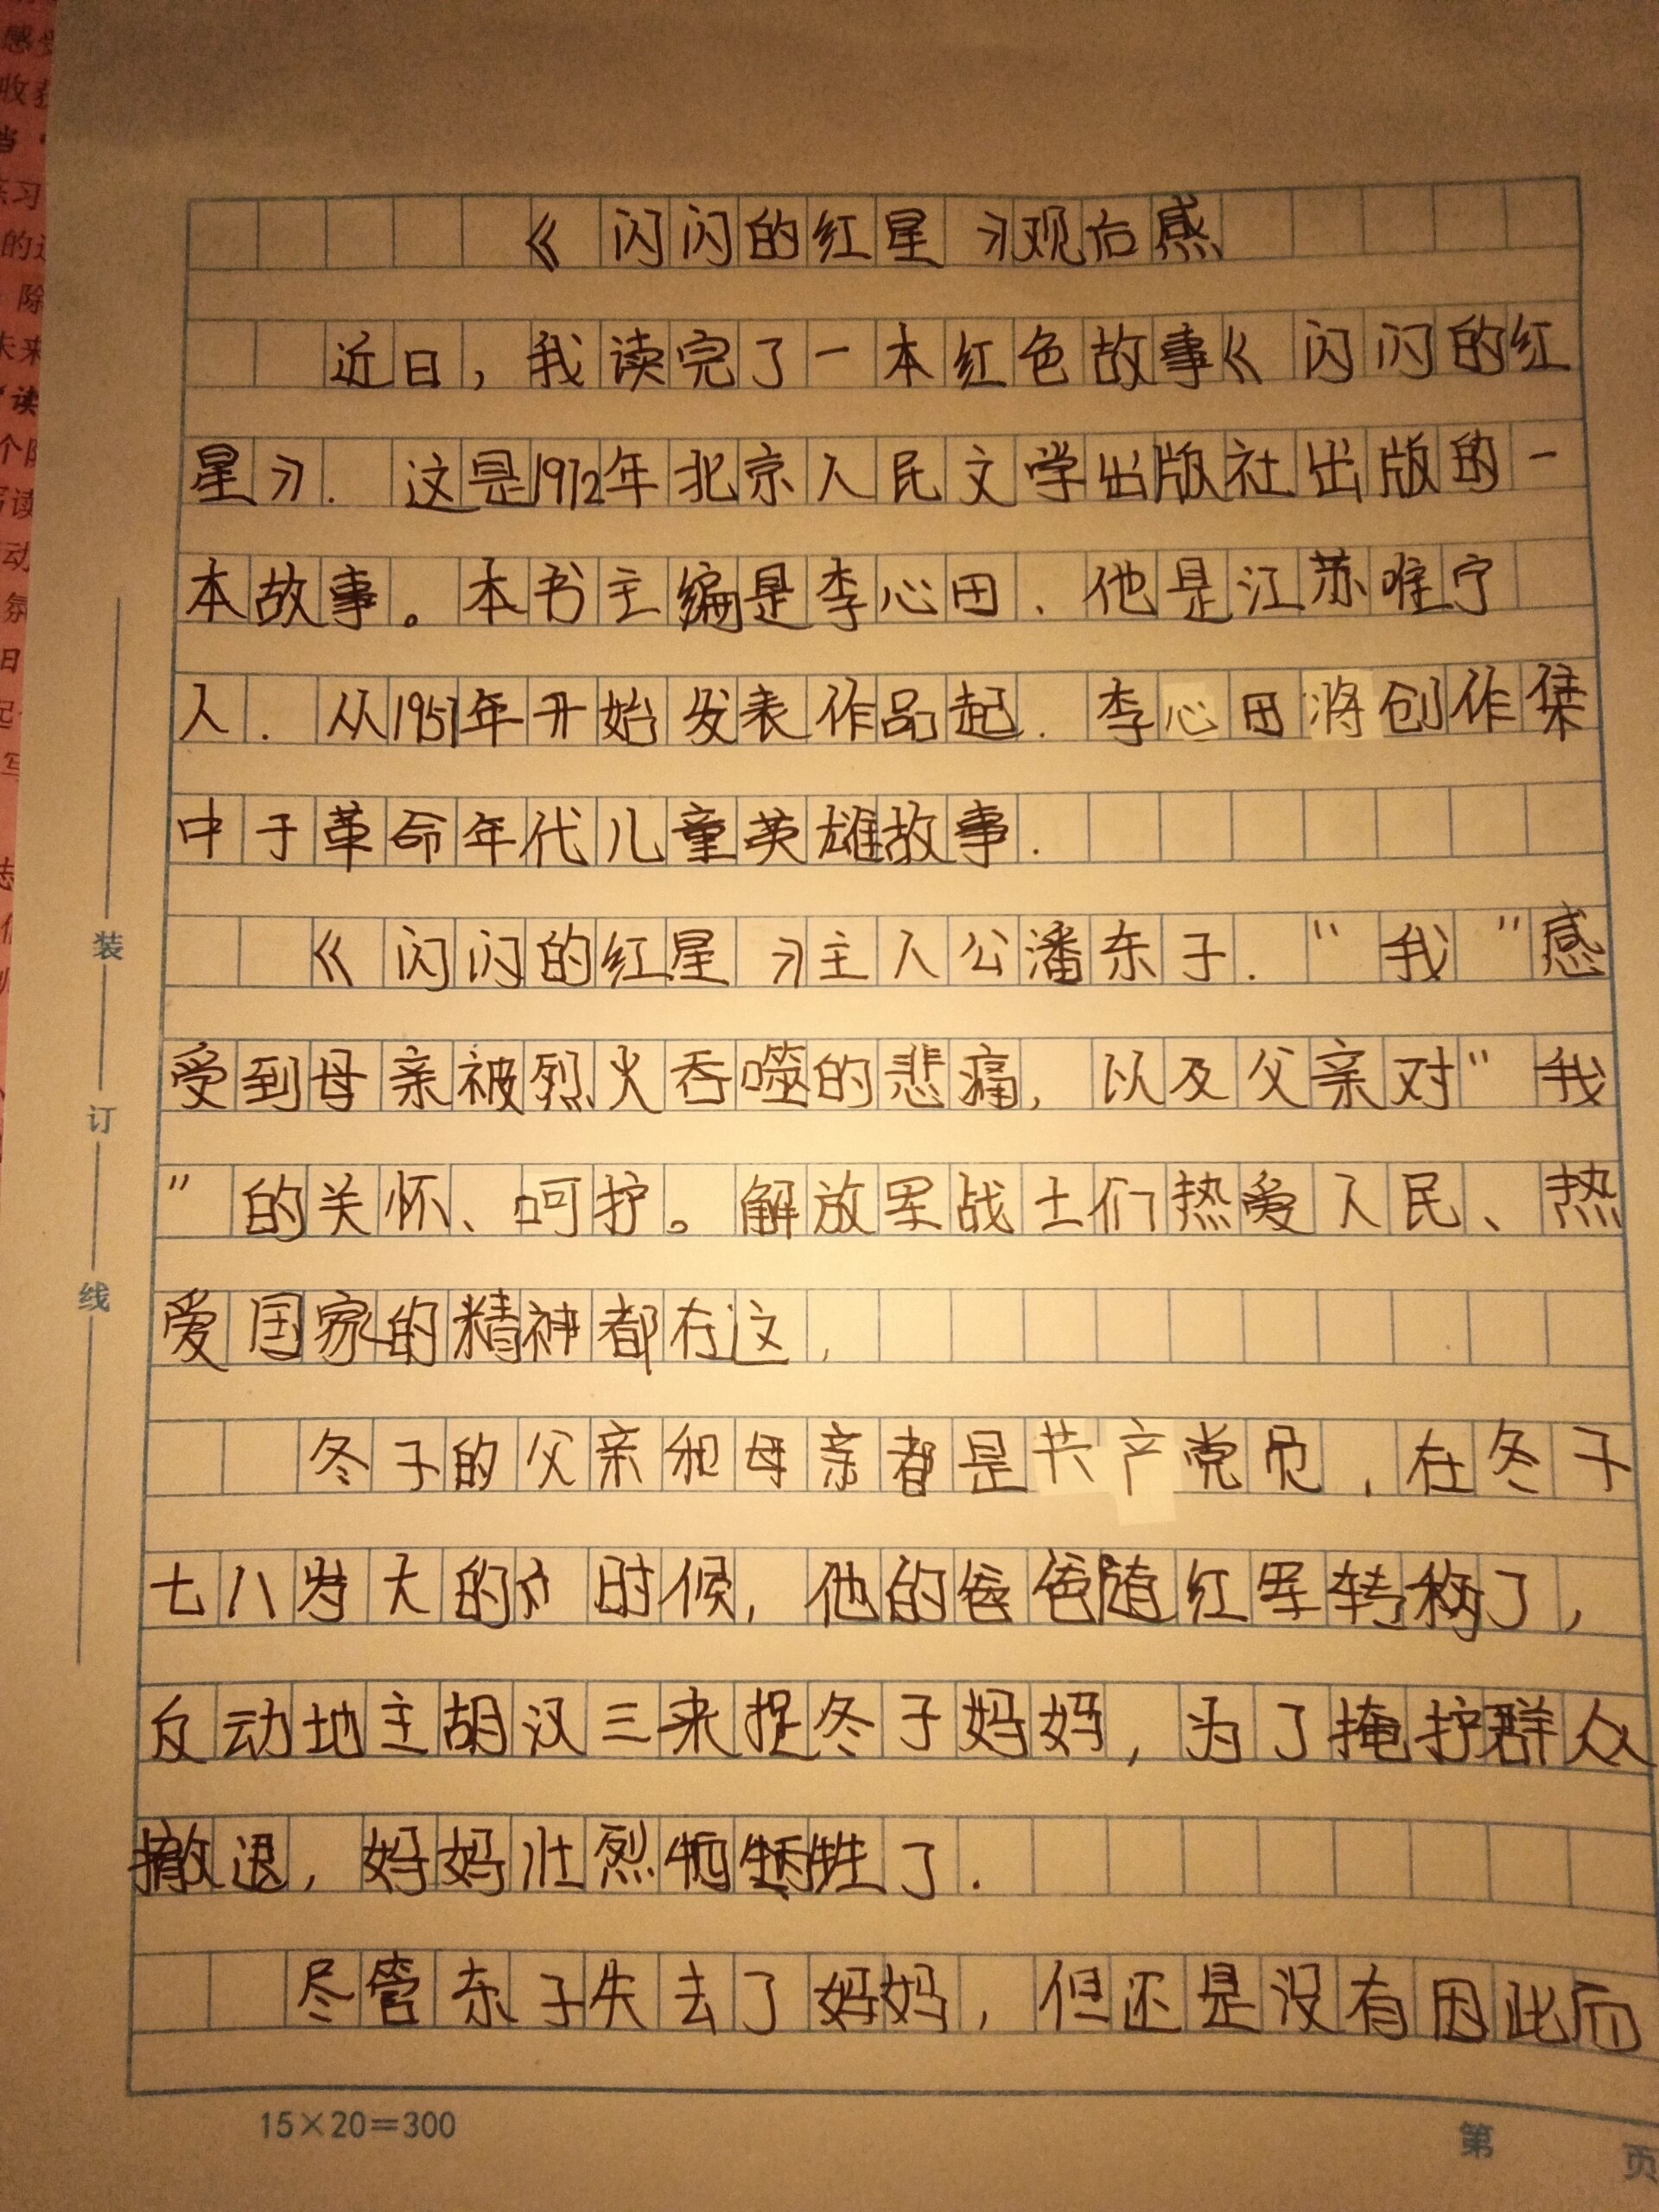 《闪闪的红星》观后感
近日，我读完了一本红色故事《闪闪的红
星》.这是1972年北京人民文学出版社出版的一
本故事。本书主编是李心田.他是江苏睢宁
人.从1957年开始发表作品起.李心田将创作集
中于革命年代儿童英雄故事.
《闪闪的红星》主人公潘东子."我"感
受到母亲被烈火吞噬的悲痛,以及父亲对"我
"的关怀、呵护。解放军战士们热爱人民、热
爱国家的精神都在这.
冬子的父亲和母亲都是共产党员,在冬子
七八岁大的 时候,他的爸爸随红军转移了,
反动地主胡汉三来捉冬子妈妈,为了掩护群众
撤退,妈妈壮烈牺牲了.
尽管东子失去了妈妈,但还是没有因此而
15×20=300
第 页
装
订
线
感
收获
当
练习
的
除
未来
读
个
写读
动
氛
日
起
写
志